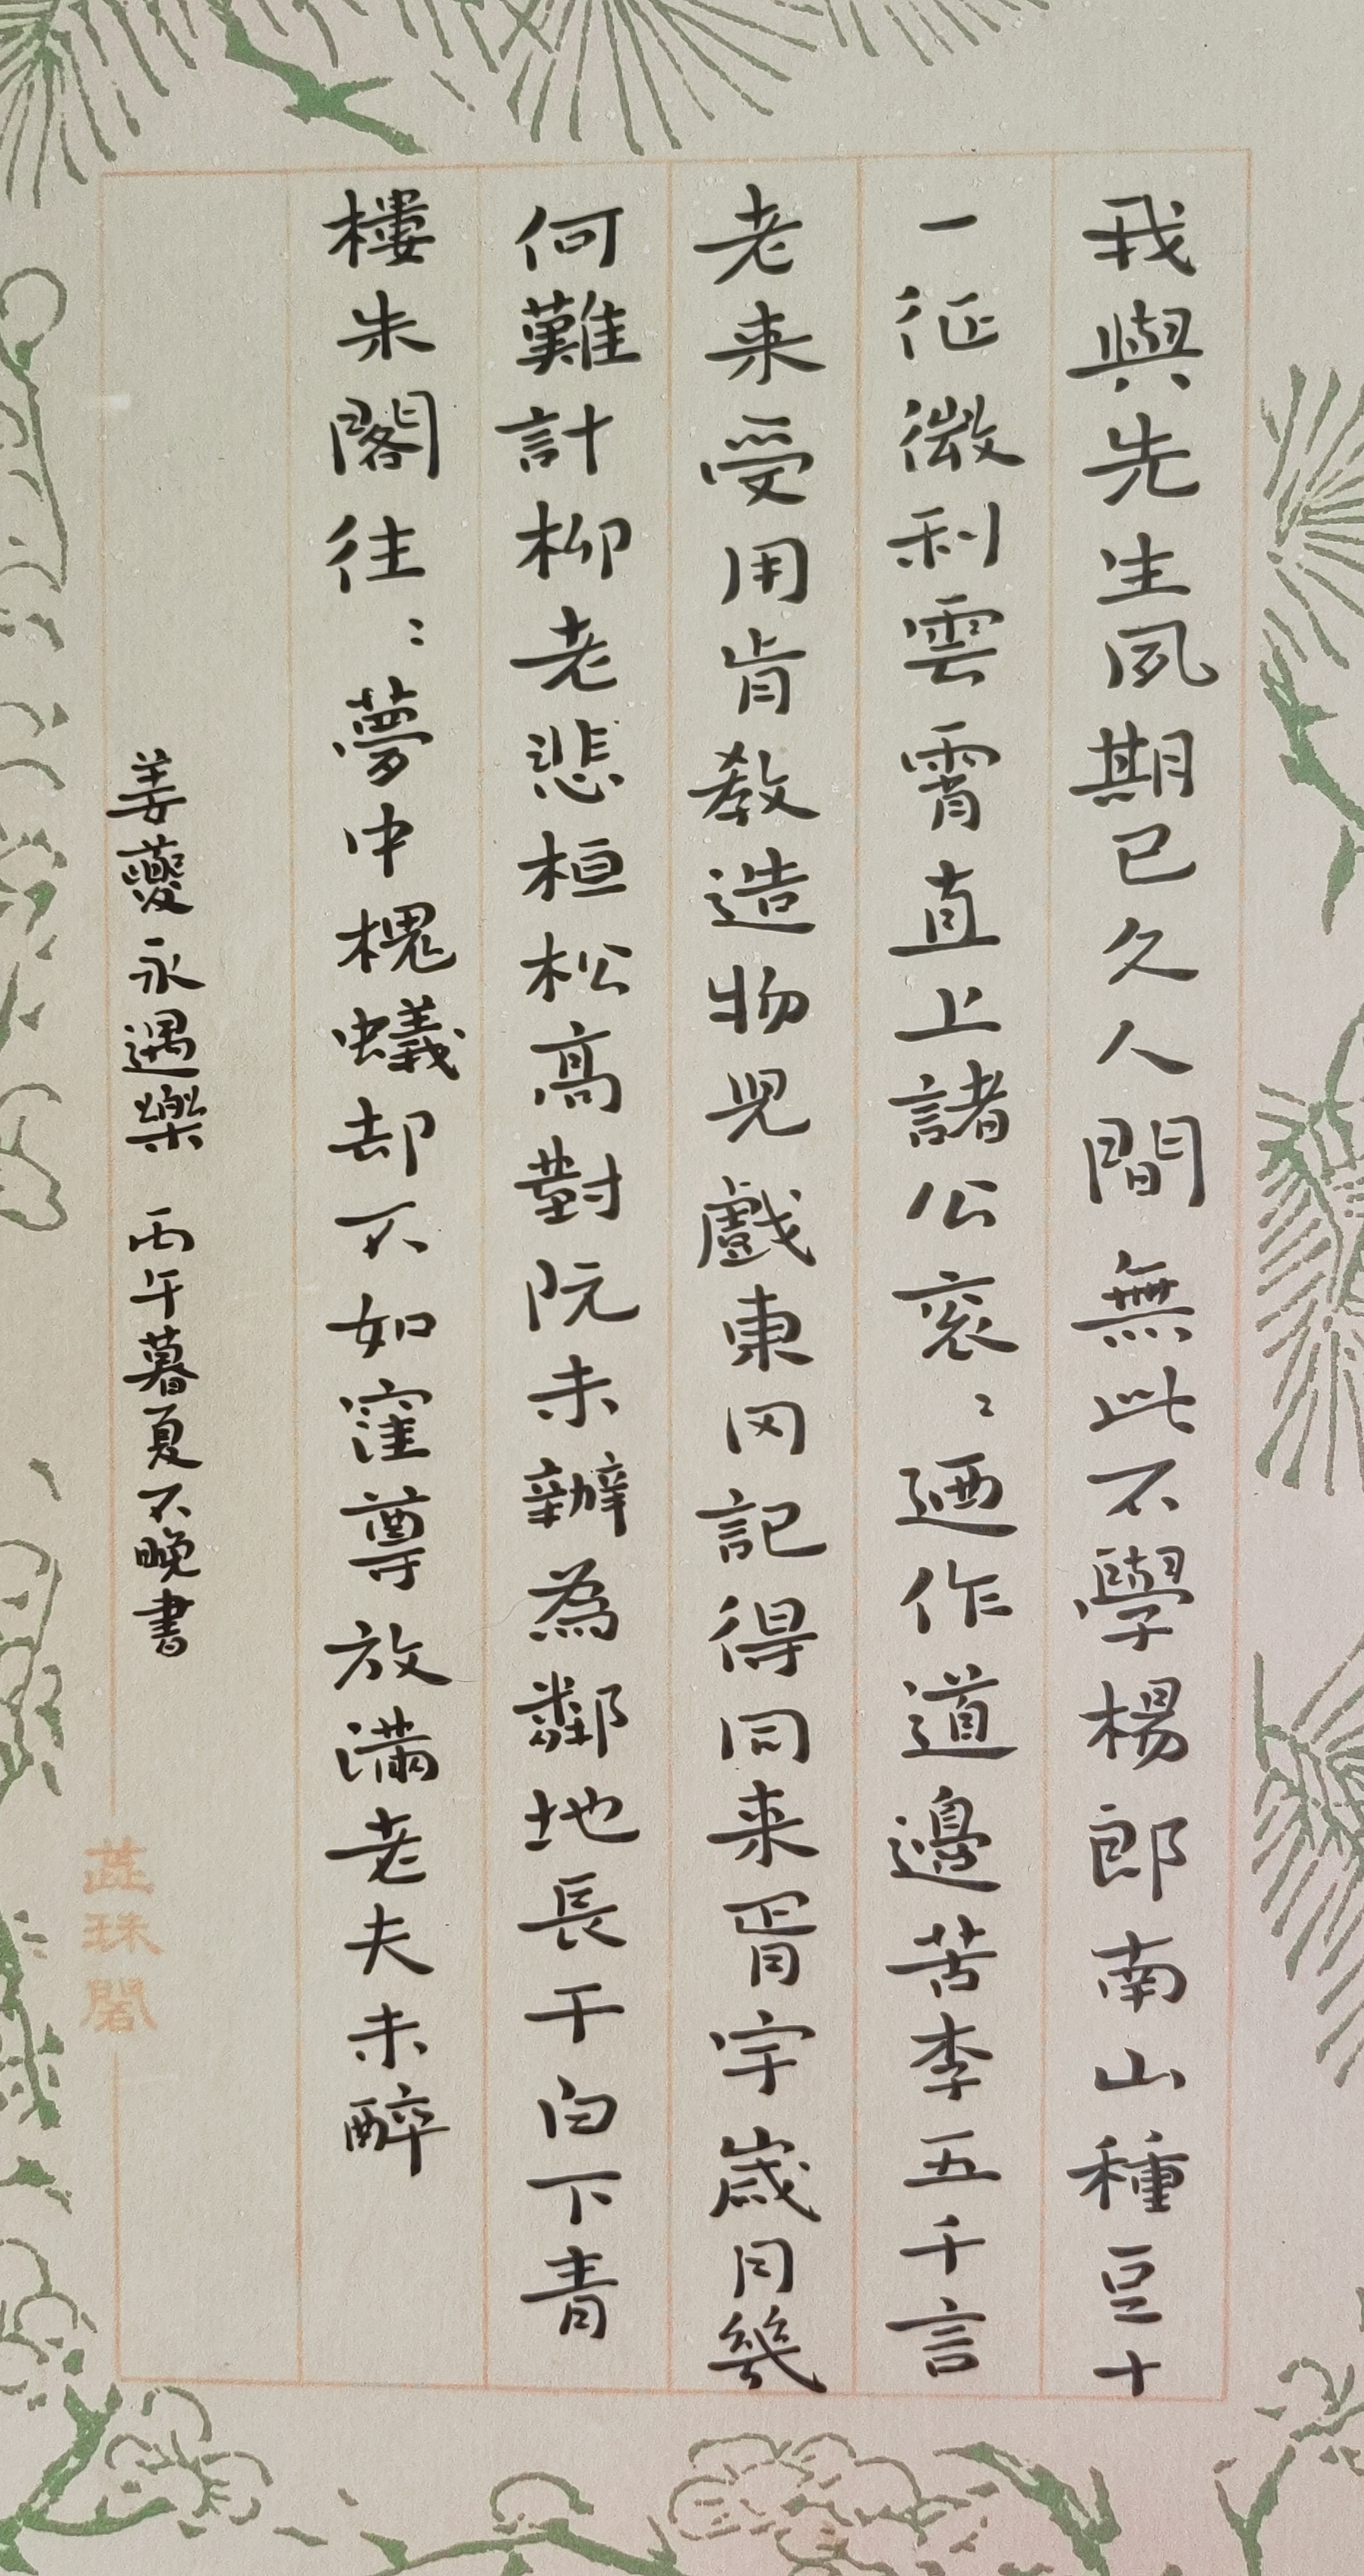 我與先生夙期已久人間無此不學楊郎南山種豆十
一征微利雲霄直上諸公衮:迺作道邊苦李五千言
老来受用肯教造物兒戲東冈記得同来胥宇歲月幾
何難計柳老悲桓松高對阮未辦為鄰地長干白下青
樓朱閣往:夢中槐蟻却不如窪尊放满老夫未醉
姜夔永遇樂 丙午暮夏不晚書
蕋珠閣